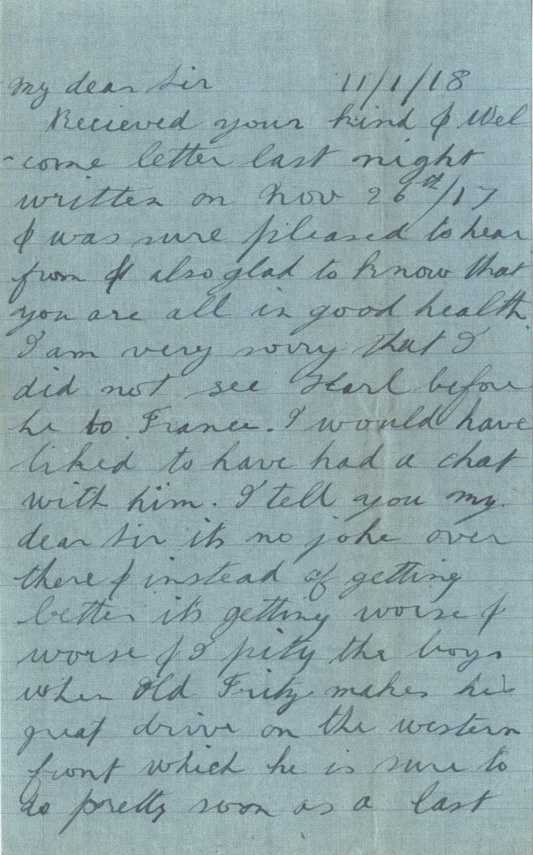 My dear Sir 11/1/18
Recieved your kind & Wel
-come letter last night
written on Nov 26th/17
& was sure pleased to hear
from & also glad to know that
you are all in good health.
I am very sorry that I
did not see Harl before
he to France. I would have
liked to have had a chat
with him. I tell you my
dear Sir its no joke over
there & instead of getting
better its getting worse &
worse & I pity the boys
when Old Fritz makes his
great drive on the western
front which he is sure to
do pretty soon as a last